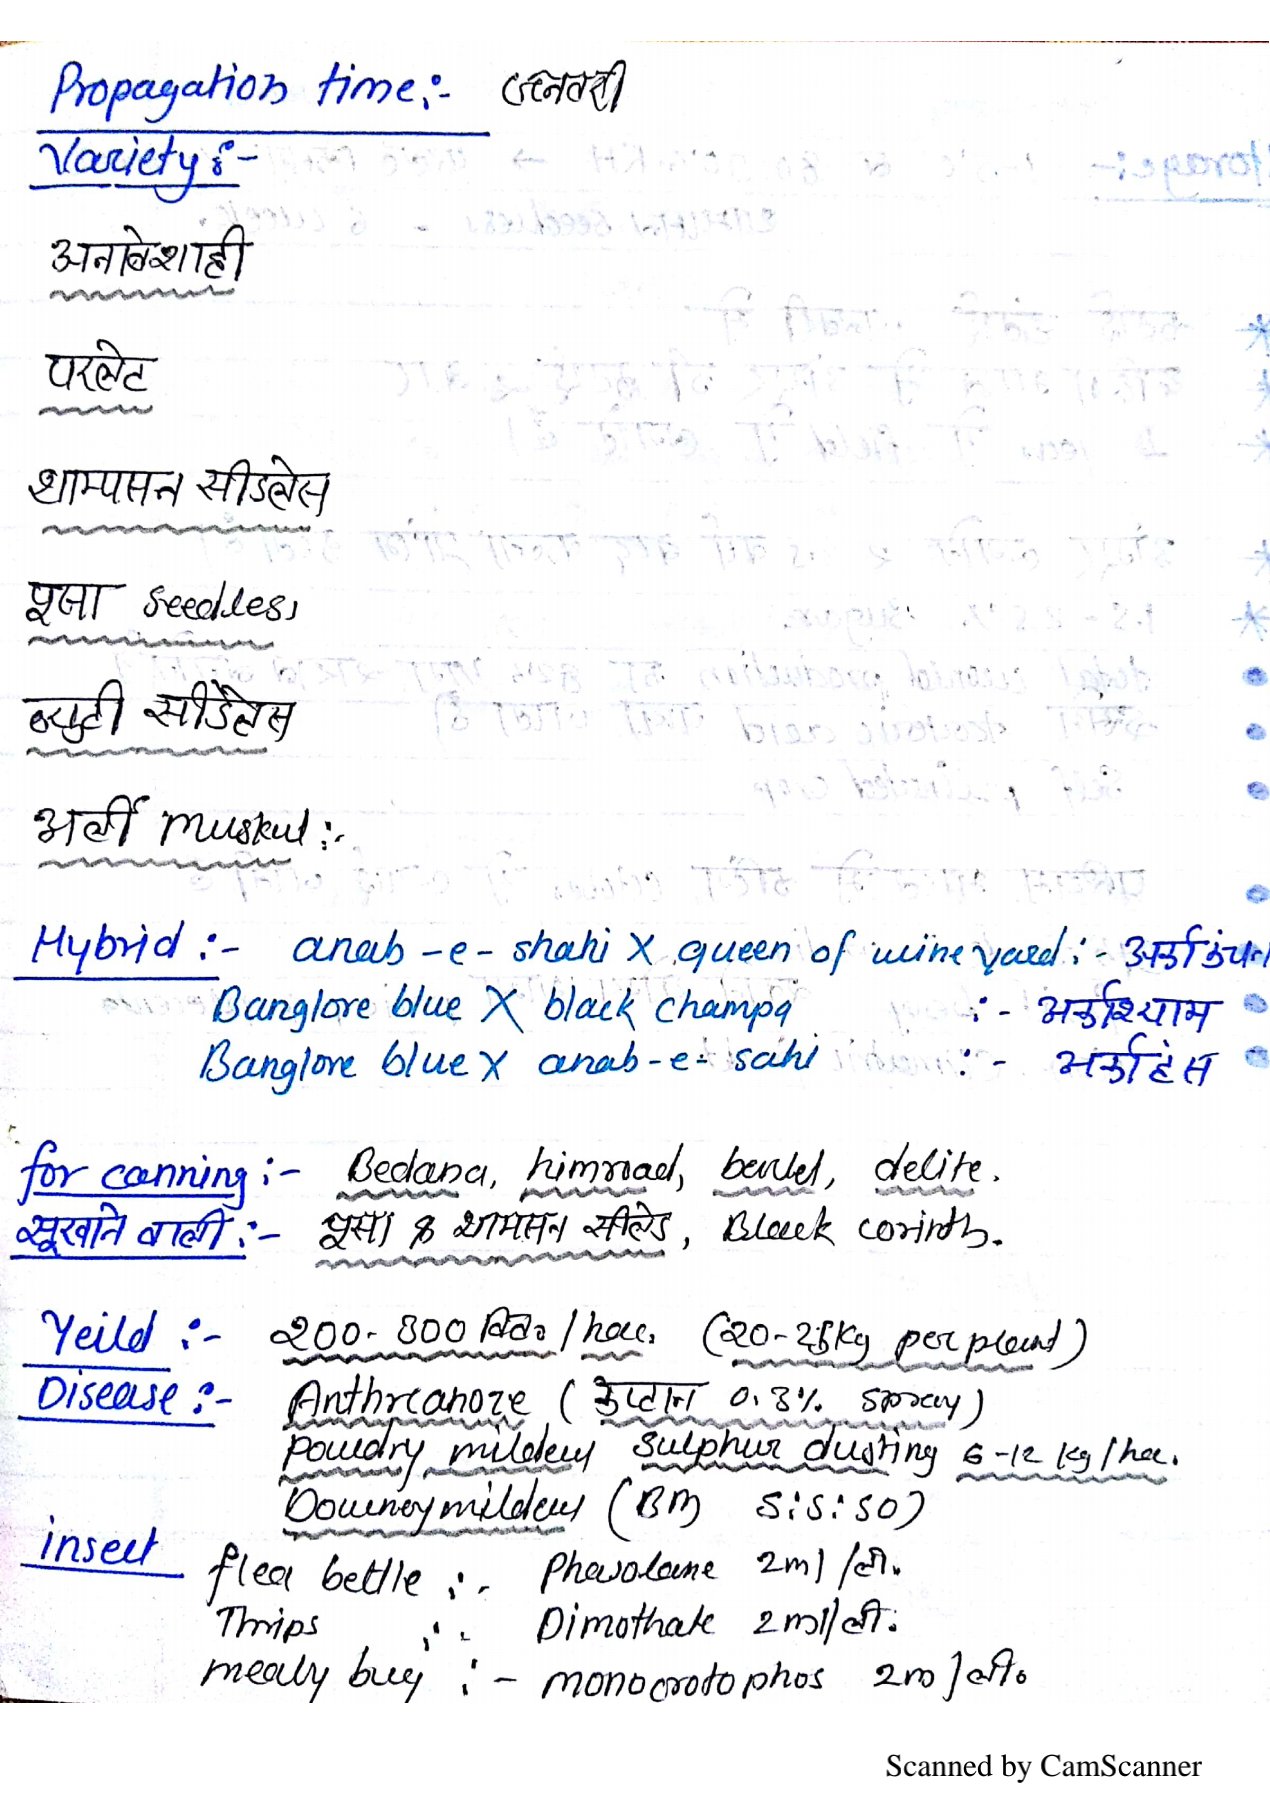 Propagation time:- जनवरी
Variety:-
अनाबेशाही
परलेट
थाम्पसन सीडलेस
पूसा seedless
ब्युटी सीडेलेस
अर्ली muskut:-
Hybrid:- anab-e-shahi X queen of wine yard:- अर्काकंचन
Banglore blue X black champa :- अर्काश्याम
Banglore blue X anab-e-sahi :- अर्काहंस
for canning:- Bedana, himroad, delite.
सूखाने वाली:- पूसा & थामसन सीलेड, Black corinth.
Yeild:- 200-300 क्वि०/hac. (20-25kg per plant)
Disease:- Anthrcanoze (केप्टान 0.3% spray)
Powdry mildew sulphur dusting 6-12 kg/hac.
Downey mildew (BM 5:5:50)
insect
flea bettle :- Phasolane 2ml/ली.
Thrips :- Dimothate 2ml/ली.
mealy bug :- monocrotophos 2ml/ली०
Scanned by CamScanner